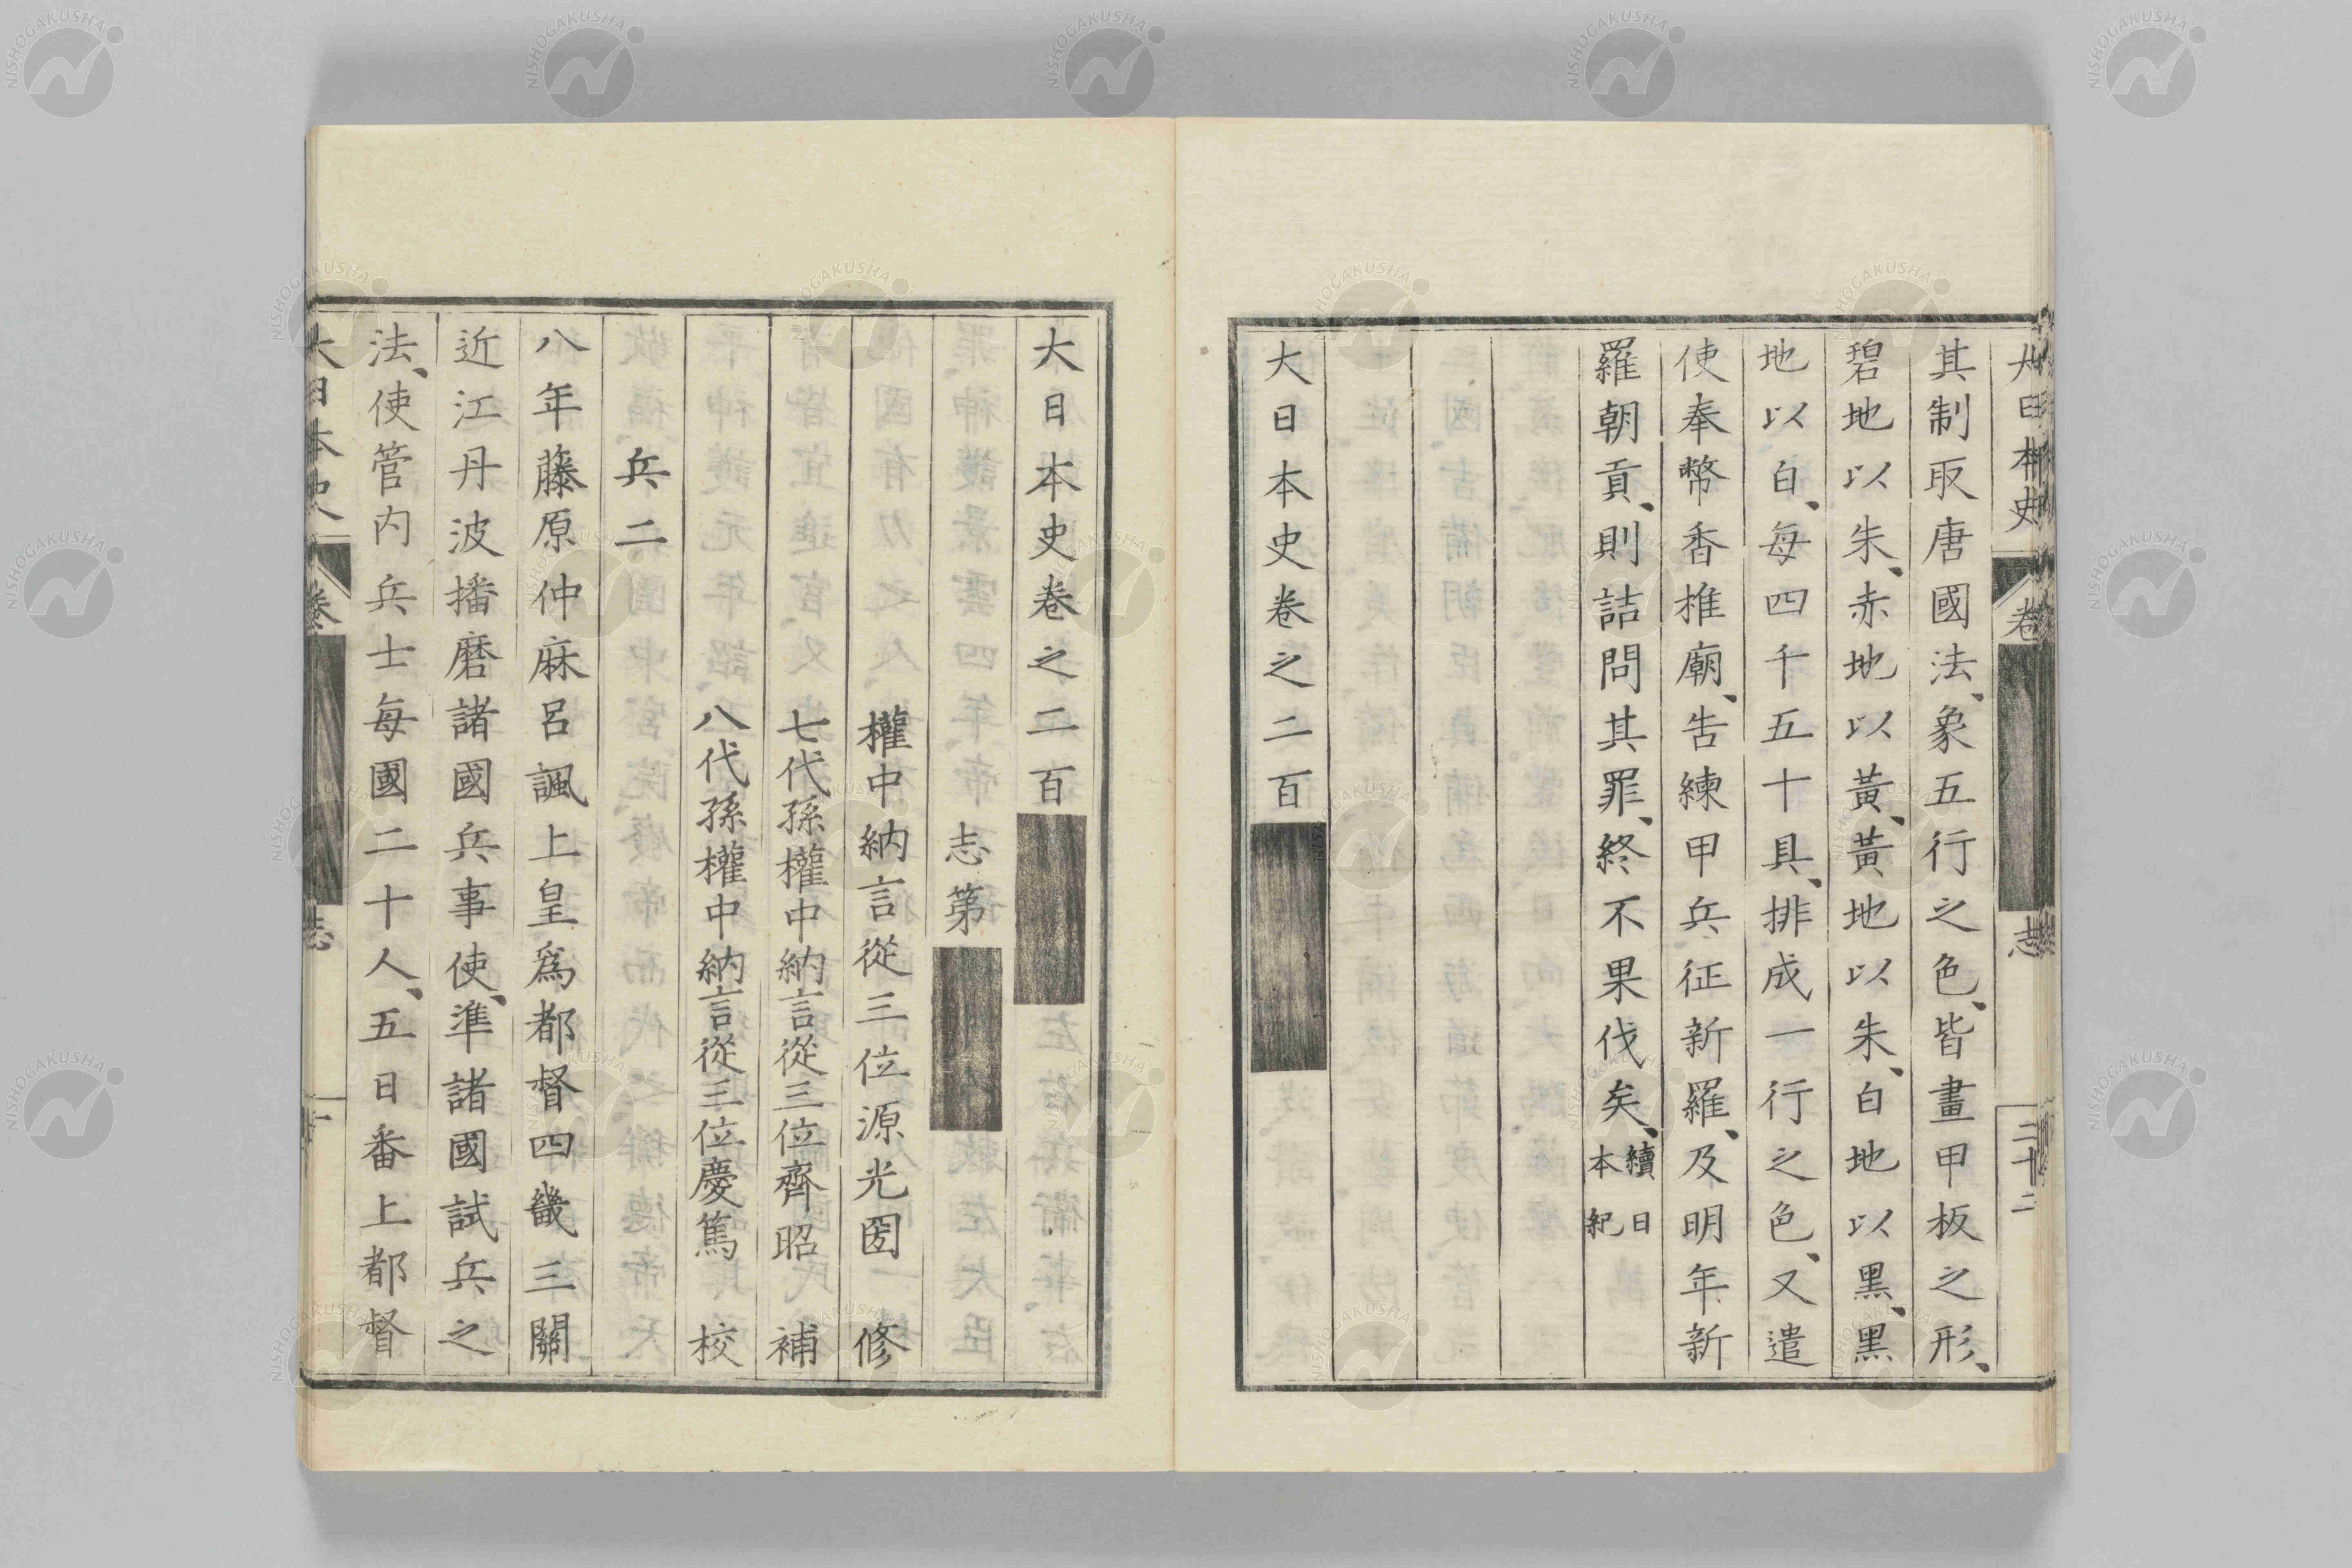 大日本史 卷 志 二十二
其制取唐國法、象五行之色、皆畫甲板之形、
碧地以朱、赤地以黃、黃地以朱、白地以黑、黑
地以白、每四千五十具、排成一行之色、又遣
使奉幣香椎廟、告練甲兵征新羅、及明年新
羅朝貢、則詰問其罪、終不果伐矣、續日本紀
大日本史卷之二百
大日本史卷之二百
志第
權中納言從三位源光圀 修
七代孫權中納言從三位齊昭 補
八代孫權中納言從三位慶篤 校
兵二
八年藤原仲麻呂諷上皇爲都督四畿三關
近江丹波播磨諸國兵事使、準諸國試兵之
法、使管内兵士每國二十人、五日番上都督
大日本史 卷 志 一
NISHOGAKUSHA